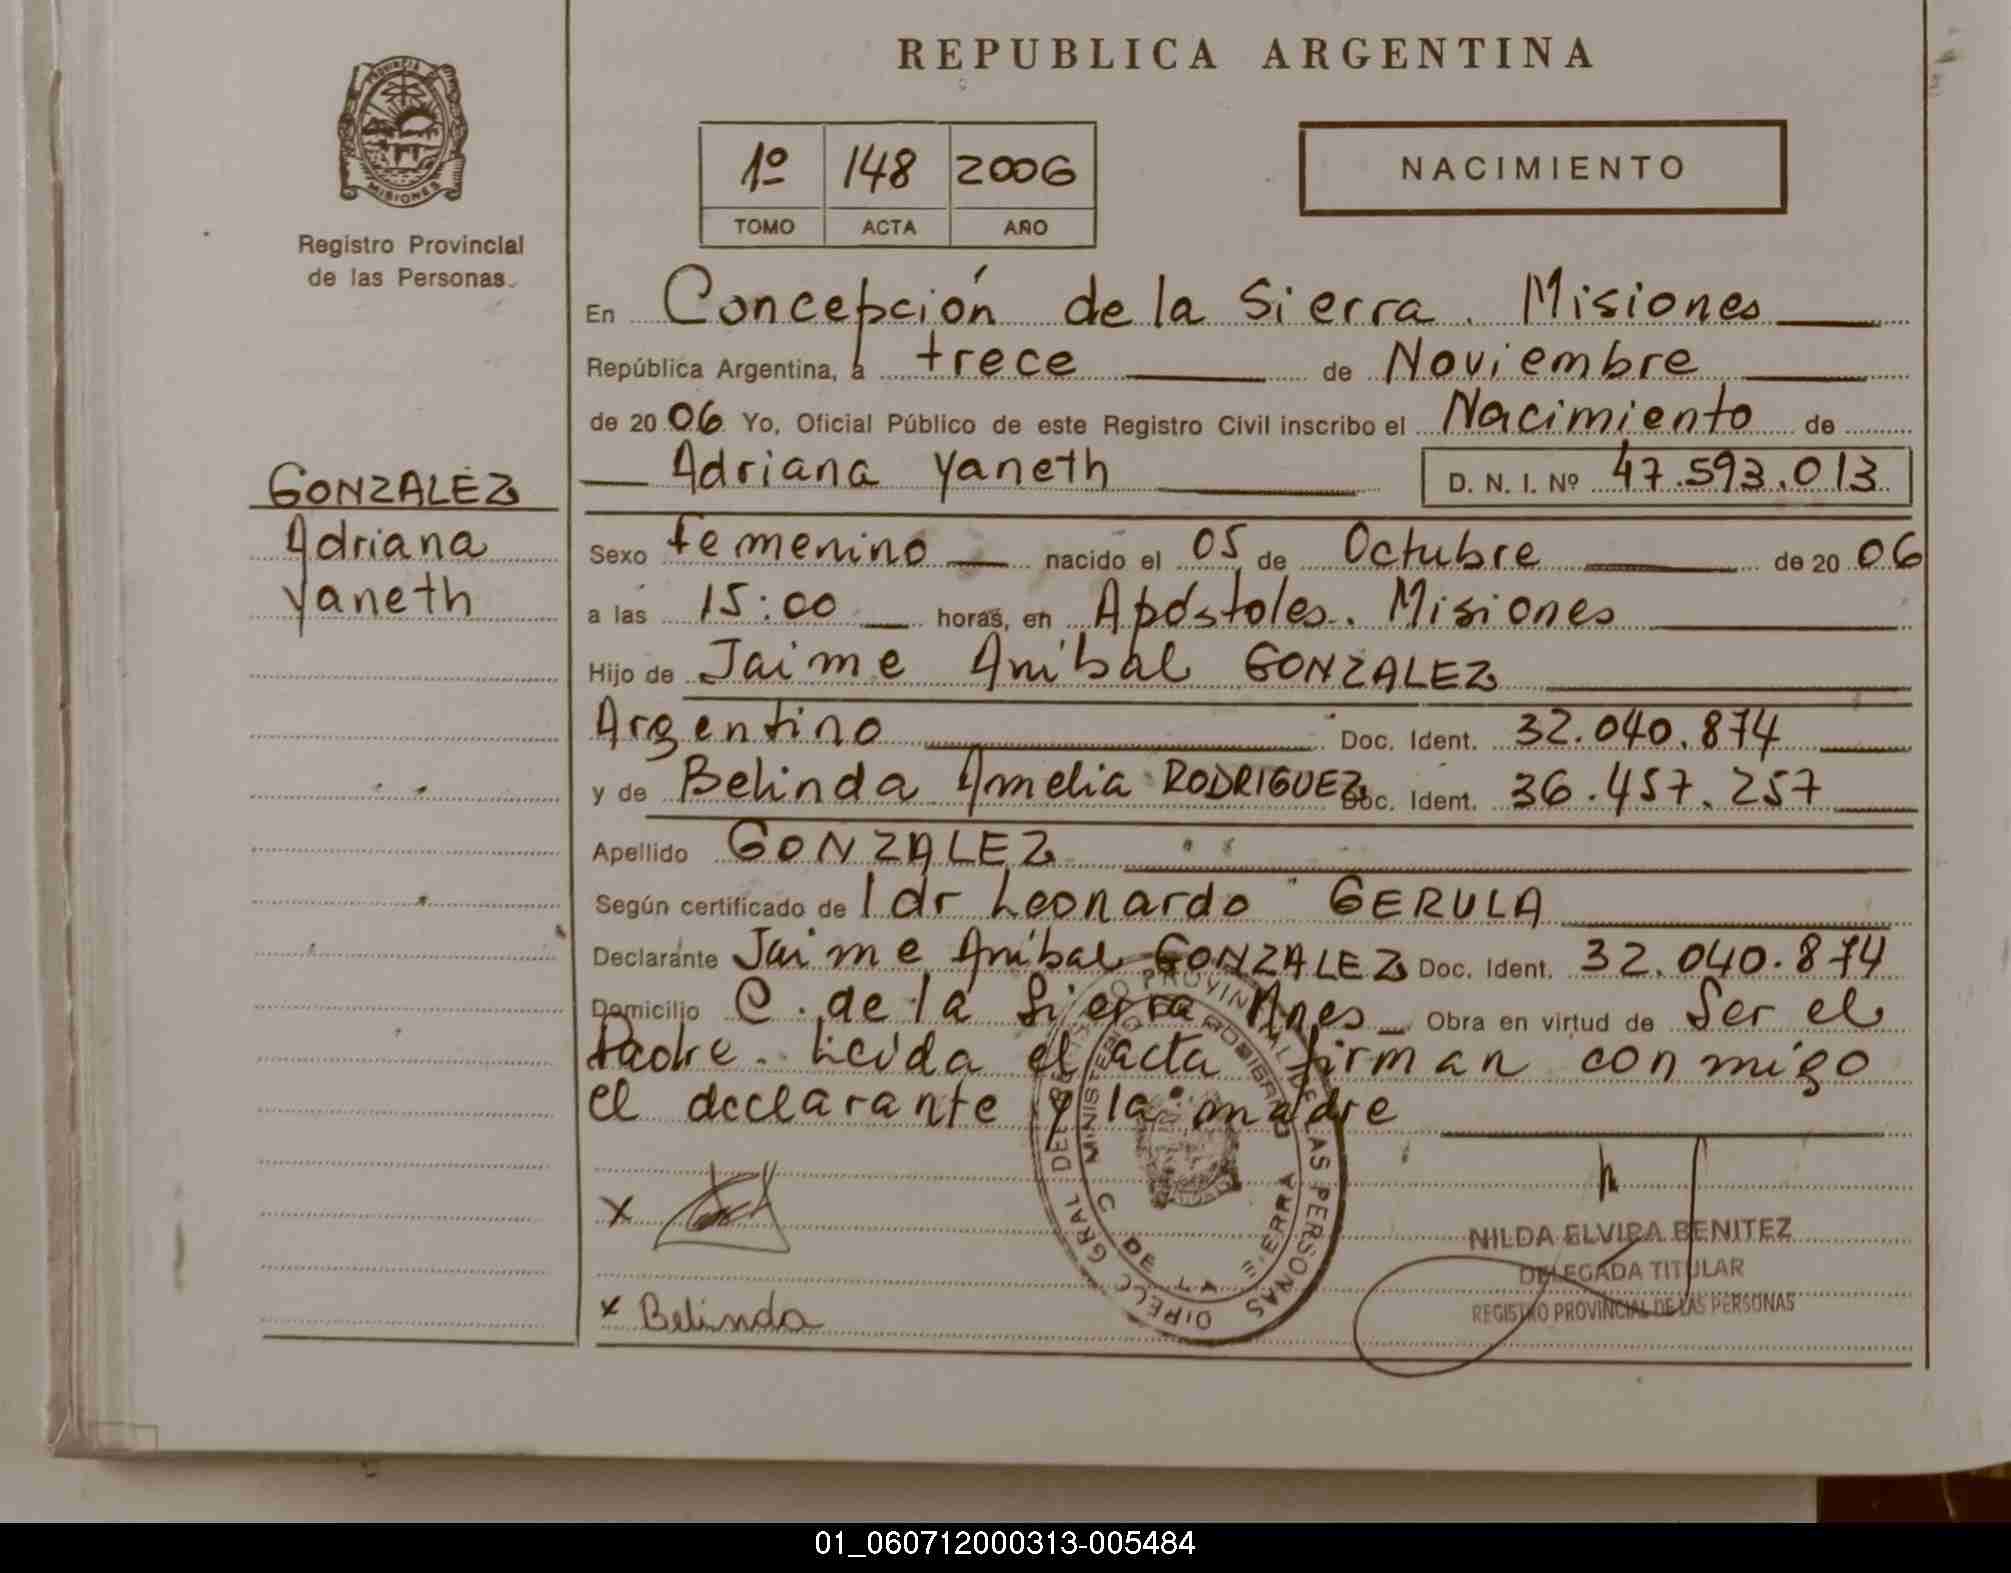 REPUBLICA ARGENTINA
PROVINCIA DE
MISIONES
Registro Provincial
de las Personas
1º 148 2006
TOMO ACTA AÑO
NACIMIENTO
En Concepción de la Sierra. Misiones
República Argentina, a trece de Noviembre
de 2006 Yo, Oficial Público de este Registro Civil inscribo el Nacimiento de
Adriana Yaneth D. N. I. Nº 47.593.013
GONZALEZ
Adriana
Yaneth
Sexo femenino nacido el 05 de Octubre de 2006
a las 15:00 horas, en Apóstoles. Misiones
Hijo de Jaime Aníbal GONZALEZ
Argentino Doc. Ident. 32.040.874
y de Belinda Amelia RODRIGUEZ Doc. Ident. 36.457.257
Apellido GONZALEZ
Según certificado de l dr Leonardo GERULA
Declarante Jaime Aníbal GONZALEZ Doc. Ident. 32.040.874
Domicilio C. de la Sierra Mnes Obra en virtud de Ser el
Padre. Leída el acta firman conmigo
el declarante y la madre
x
x Belinda
MINISTERIO DE GOBIERNO
C DE LA SIERRA
NILDA ELVIRA BENITEZ
DELEGADA TITULAR
REGISTRO PROVINCIAL DE LAS PERSONAS
01_060712000313-005484